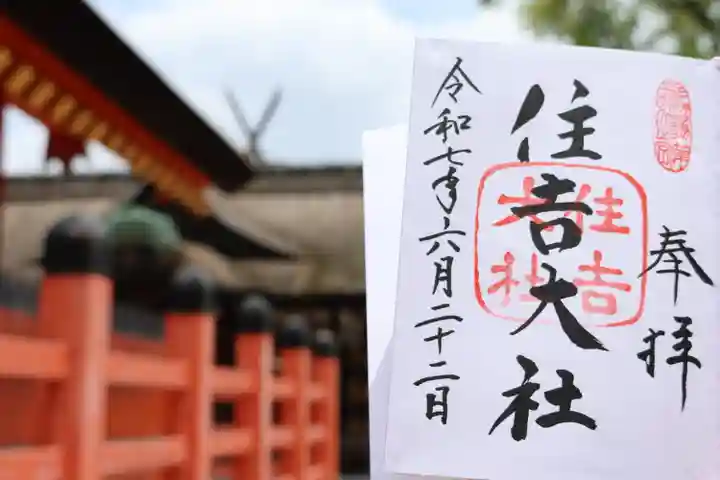 奉拝
住吉大社
住吉大社
令和七年六月二十二日